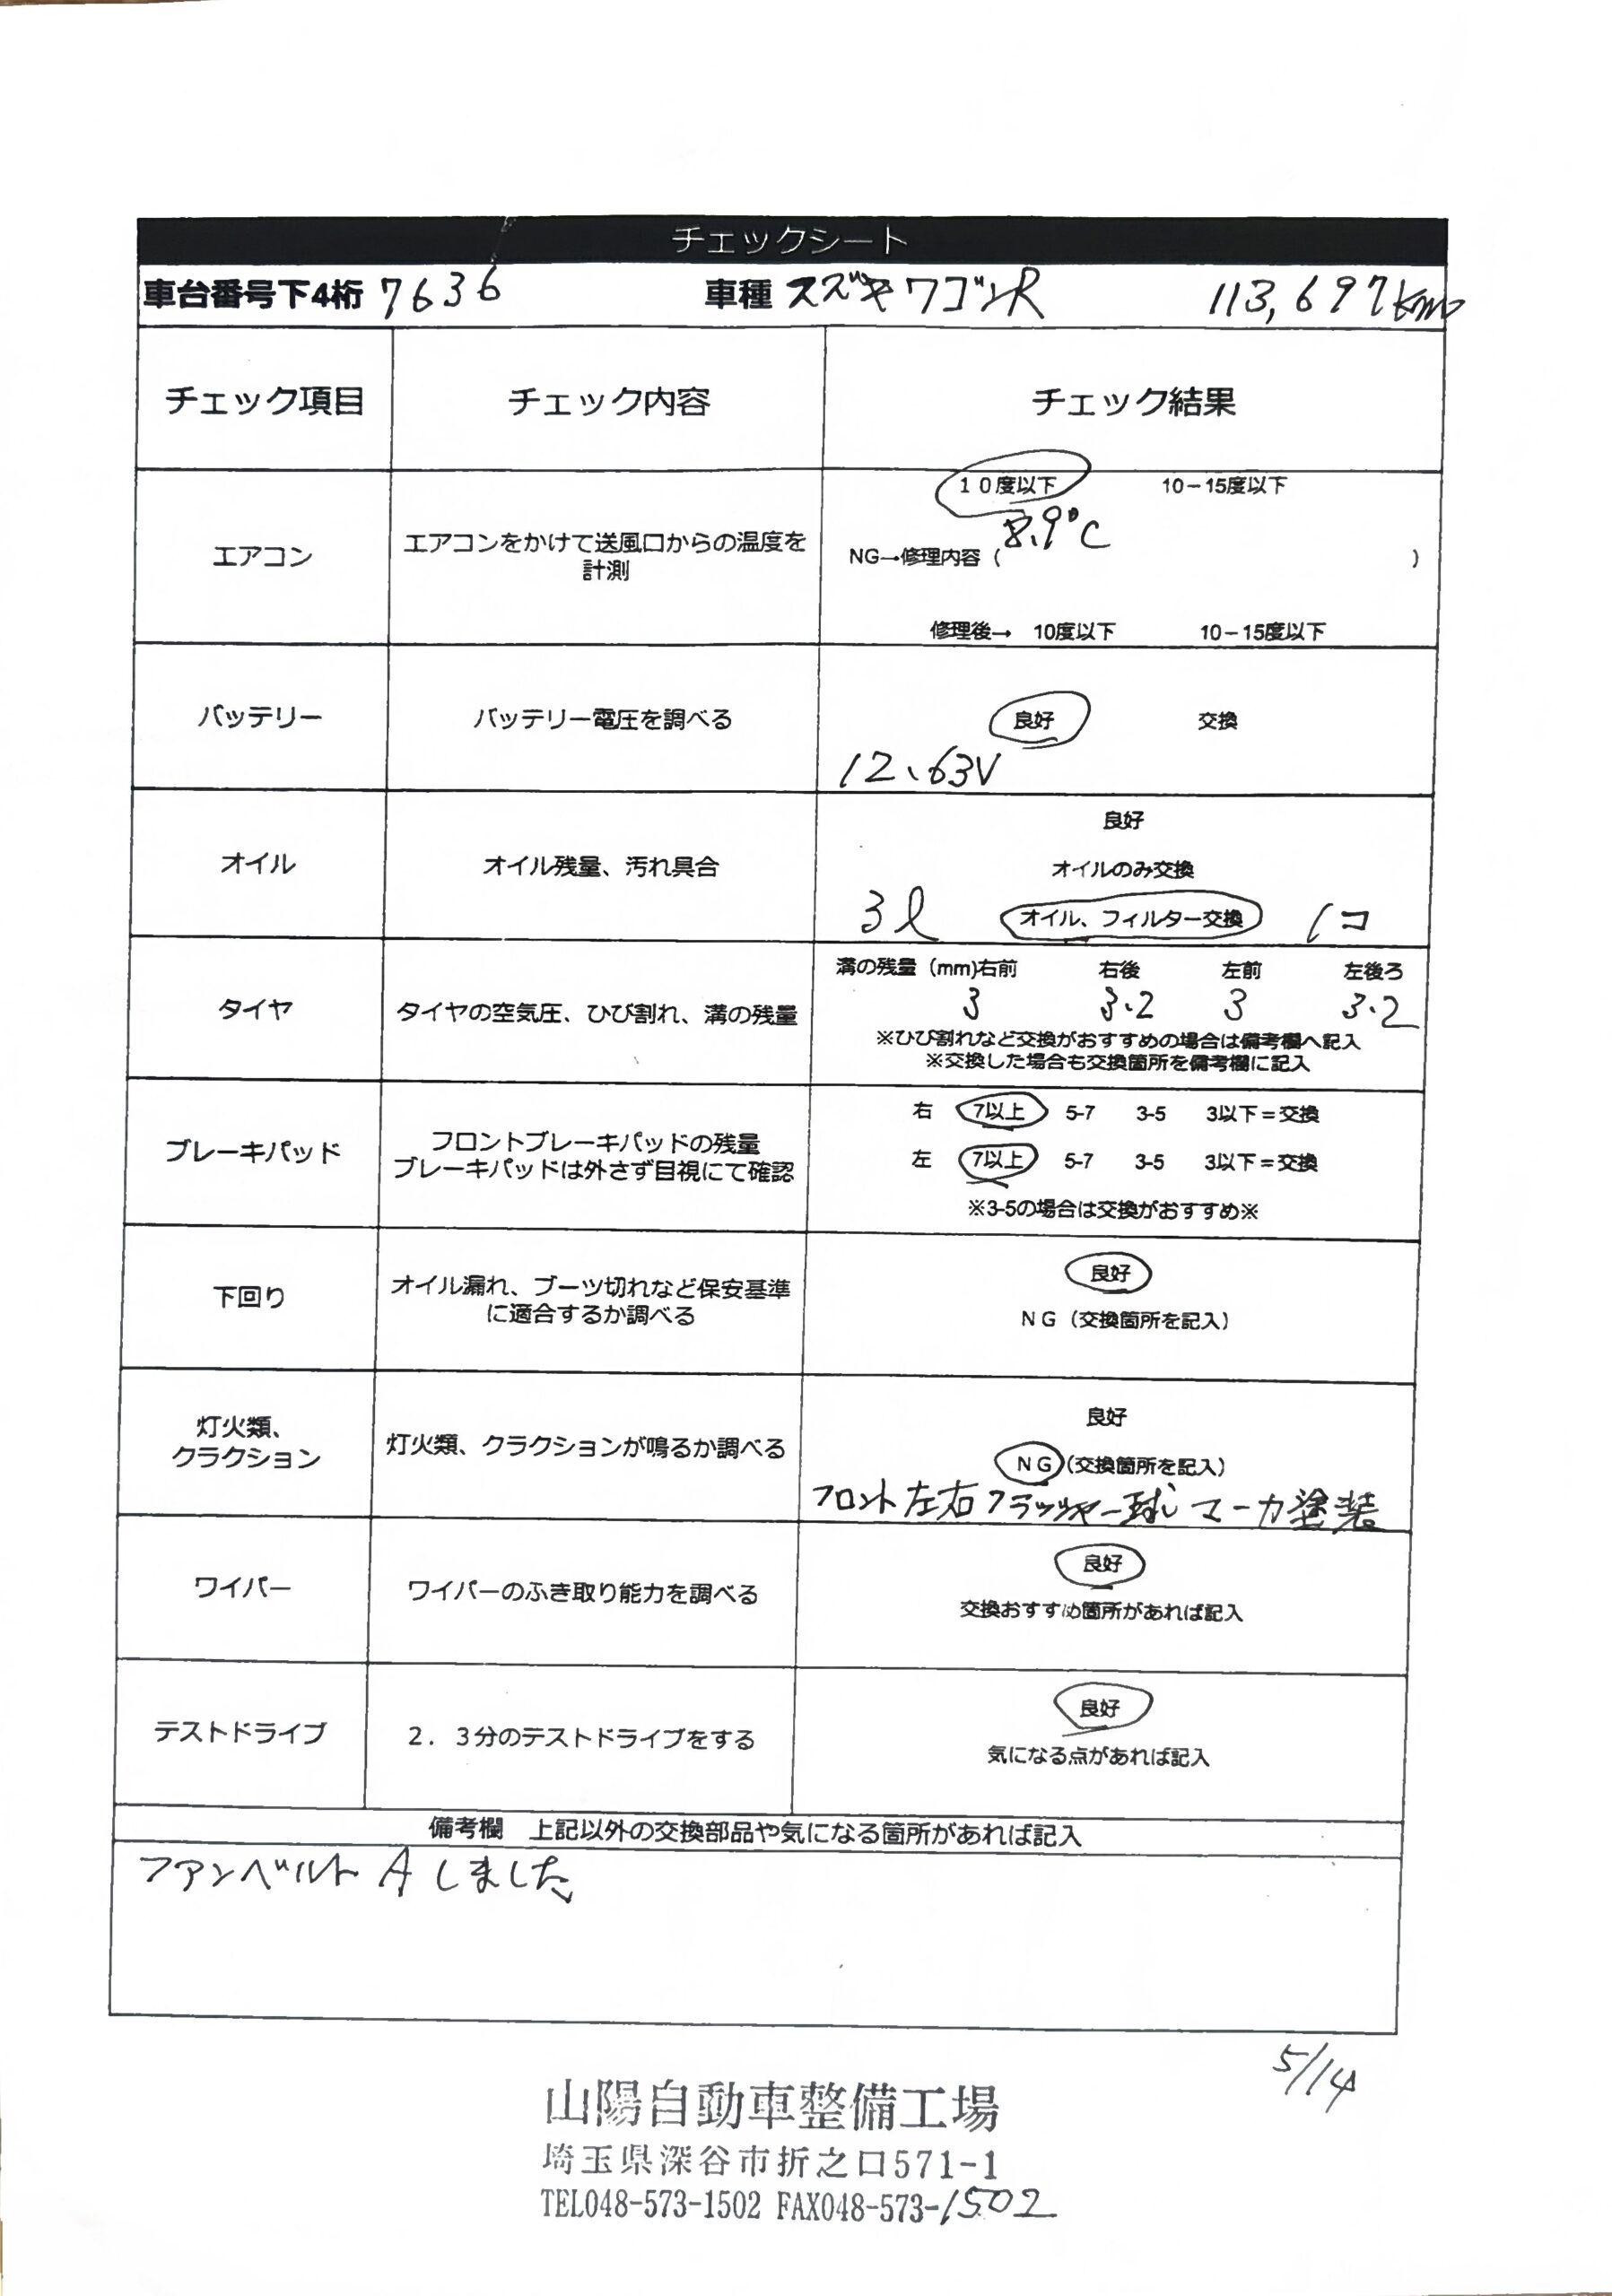 チェックシート
車台番号下4桁 7636 車種 スズキワゴンR 113,697km
チェック項目 チェック内容 チェック結果
10度以下 10-15度以下
8.9°C
エアコン エアコンをかけて送風口からの温度を計測 NG→修理内容 ( )
修理後→ 10度以下 10-15度以下
バッテリー バッテリー電圧を調べる 良好 交換
12.63V
良好
オイル オイル残量、汚れ具合 オイルのみ交換
3ℓ オイル、フィルター交換 1コ
溝の残量 (mm)右前 右後 左前 左後ろ
タイヤ タイヤの空気圧、ひび割れ、溝の残量 3 3.2 3 3.2
※ひび割れなど交換がおすすめの場合は備考欄へ記入
※交換した場合も交換箇所を備考欄に記入
右 7以上 5-7 3-5 3以下=交換
ブレーキパッド フロントブレーキパッドの残量
ブレーキパッドは外さず目視にて確認 左 7以上 5-7 3-5 3以下=交換
※3-5の場合は交換がおすすめ※
下回り オイル漏れ、ブーツ切れなど保安基準に適合するか調べる 良好
NG (交換箇所を記入)
灯火類、クラクション 灯火類、クラクションが鳴るか調べる 良好
NG (交換箇所を記入)
フロント左右フラッシャー球 マーカ塗装
ワイパー ワイパーのふき取り能力を調べる 良好
交換おすすめ箇所があれば記入
テストドライブ 2.3分のテストドライブをする 良好
気になる点があれば記入
備考欄 上記以外の交換部品や気になる箇所があれば記入
ファンベルト A しました
5/14
山陽自動車整備工場
埼玉県深谷市折之口571-1
TEL048-573-1502 FAX048-573-1502